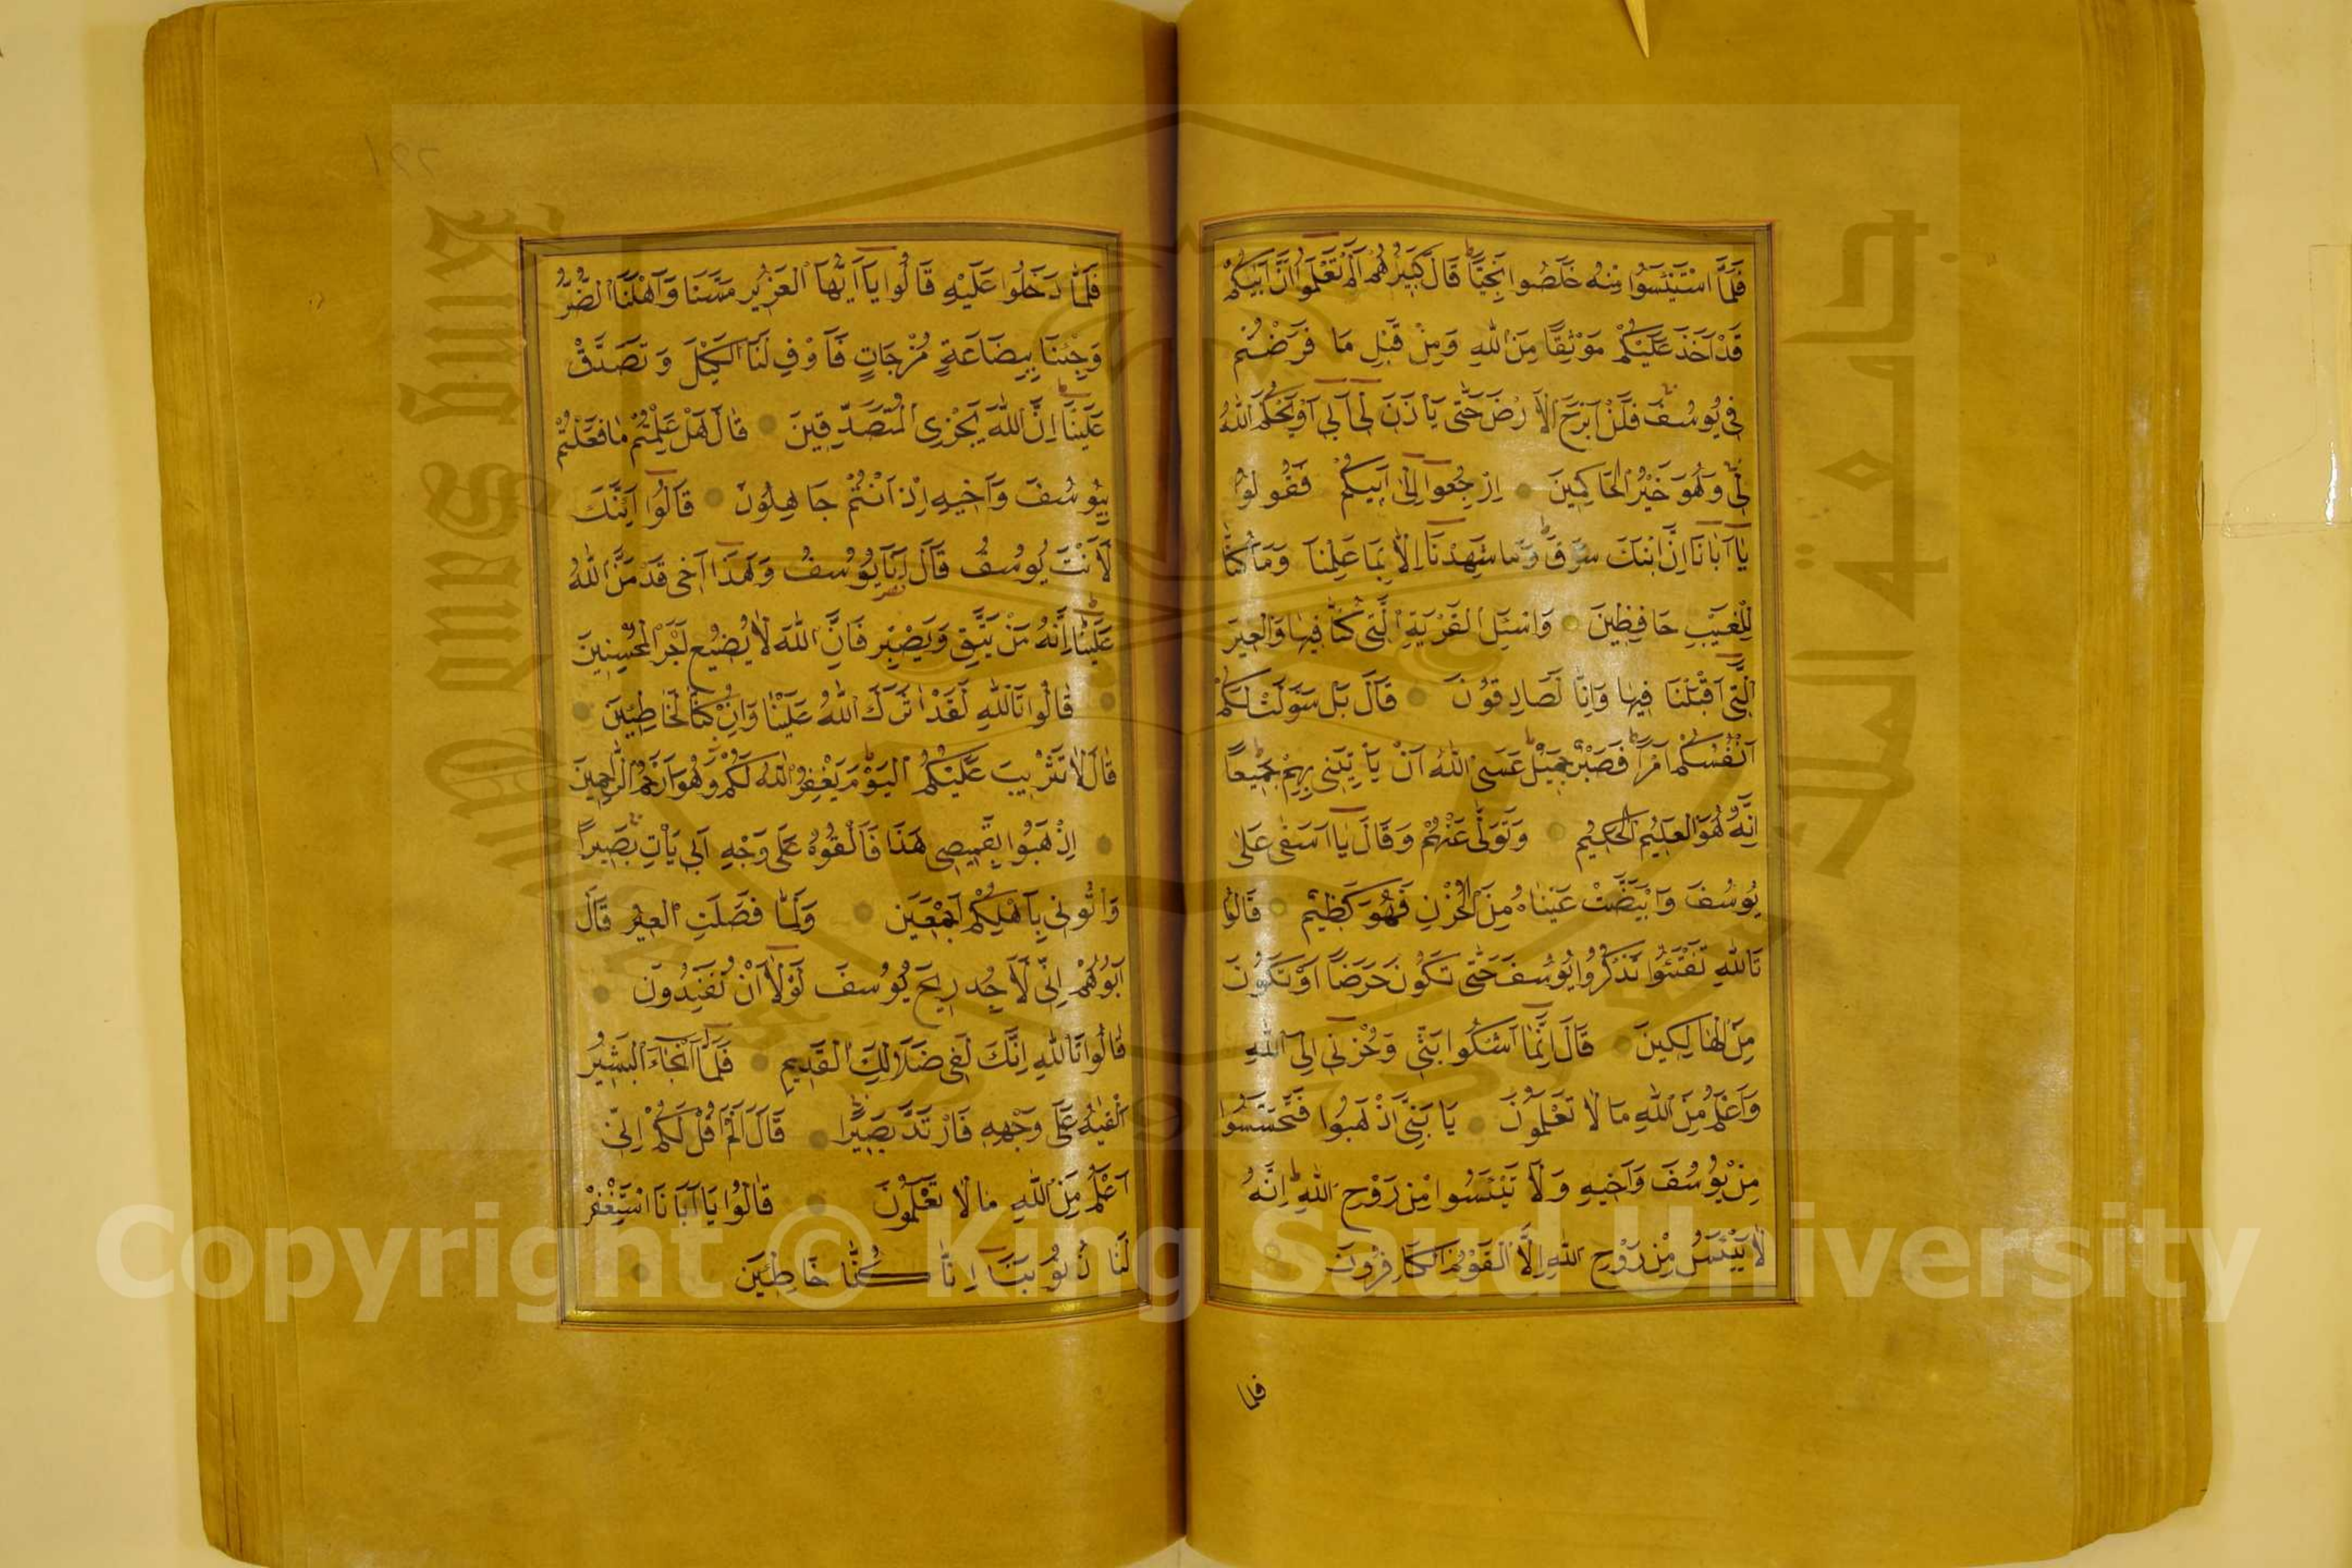 فَلَمَّا اسْتَيْئَسُوا مِنْهُ خَلَصُوا نَجِيًّا قَالَ كَبِيرُهُمْ اَلَمْ تَعْلَمُوا اَنَّ اَبَيكُمْ
قَدْ اَخَذَ عَلَيْكُمْ مَوْثِقًا مِنَ اللّٰهِ وَمِنْ قَبْلِ مَا فَرَّضْتُمْ
فِى يُوسُفَ فَلَنْ اَبْرَحَ الْاَرْضَ حَتّٰى يَأْذَنَ لِى اَبِى اَوْ يَحْكُمَ اللّٰهُ
لِى وَهُوَ خَيْرُ الْحَاكِمِينَ اِرْجِعُوا اِلٰى اَبِيكُمْ فَقُولُوا
يَا اَبَانَا اِنَّ ابْنَكَ سَرَقَ وَمَا شَهِدْنَا اِلَّا بِمَا عَلِمْنَا وَمَا كُنَّا
لِلْغَيْبِ حَافِظِينَ وَاسْئَلِ الْقَرْيَةَ الَّتِى كُنَّا فِيهَا وَالْعِيرَ
الَّتِى اَقْبَلْنَا فِيهَا وَاِنَّا لَصَادِقُونَ قَالَ بَلْ سَوَّلَتْ لَكُمْ
اَنْفُسُكُمْ اَمْرًا فَصَبْرٌ جَمِيلٌ عَسَى اللّٰهُ اَنْ يَأْتِيَنِى بِهِمْ جَمِيعًا
اِنَّهُ هُوَ الْعَلِيمُ الْحَكِيمُ وَتَوَلّٰى عَنْهُمْ وَقَالَ يَا اَسَفٰى عَلٰى
يُوسُفَ وَابْيَضَّتْ عَيْنَاهُ مِنَ الْحُزْنِ فَهُوَ كَظِيمٌ قَالُوا
تَاللّٰهِ تَفْتَئُوا تَذْكُرُ يُوسُفَ حَتّٰى تَكُونَ حَرَضًا اَوْ تَكُونَ
مِنَ الْهَالِكِينَ قَالَ اِنَّمَا اَشْكُوا بَثِّى وَحُزْنِى اِلَى اللّٰهِ
وَاَعْلَمُ مِنَ اللّٰهِ مَا لَا تَعْلَمُونَ يَا بَنِىَّ اذْهَبُوا فَتَحَسَّسُوا
مِنْ يُوسُفَ وَاَخِيهِ وَلَا تَيْئَسُوا مِنْ رَوْحِ اللّٰهِ اِنَّهُ
لَا يَيْئَسُ مِنْ رَوْحِ اللّٰهِ اِلَّا الْقَوْمُ الْكَافِرُونَ
فلما
فَلَمَّا دَخَلُوا عَلَيْهِ قَالُوا يَا اَيُّهَا الْعَزِيزُ مَسَّنَا وَاَهْلَنَا الضُّرُّ
وَجِئْنَا بِبِضَاعَةٍ مُزْجَاتٍ فَاَوْفِ لَنَا الْكَيْلَ وَتَصَدَّقْ
عَلَيْنَا اِنَّ اللّٰهَ يَجْزِى الْمُتَصَدِّقِينَ قَالَ هَلْ عَلِمْتُمْ مَا فَعَلْتُمْ
بِيُوسُفَ وَاَخِيهِ اِذْ اَنْتُمْ جَاهِلُونَ قَالُوا اَئِنَّكَ
لَاَنْتَ يُوسُفُ قَالَ اَنَا يُوسُفُ وَهٰذَا اَخِى قَدْ مَنَّ اللّٰهُ
عَلَيْنَا اِنَّهُ مَنْ يَتَّقِ وَيَصْبِرْ فَاِنَّ اللّٰهَ لَا يُضِيعُ اَجْرَ الْمُحْسِنِينَ
قَالُوا تَاللّٰهِ لَقَدْ اٰثَرَكَ اللّٰهُ عَلَيْنَا وَاِنْ كُنَّا لَخَاطِئِينَ
قَالَ لَا تَثْرِيبَ عَلَيْكُمُ الْيَوْمَ يَغْفِرُ اللّٰهُ لَكُمْ وَهُوَ اَرْحَمُ الرَّاحِمِينَ
اِذْهَبُوا بِقَمِيصِى هٰذَا فَاَلْقُوهُ عَلٰى وَجْهِ اَبِى يَأْتِ بَصِيرًا
وَأْتُونِى بِاَهْلِكُمْ اَجْمَعِينَ وَلَمَّا فَصَلَتِ الْعِيرُ قَالَ
اَبُوهُمْ اِنِّى لَاَجِدُ رِيحَ يُوسُفَ لَوْلَا اَنْ تُفَنِّدُونَ
قَالُوا تَاللّٰهِ اِنَّكَ لَفِى ضَلَالِكَ الْقَدِيمِ فَلَمَّا اَنْ جَاءَ الْبَشِيرُ
اَلْقٰيهُ عَلٰى وَجْهِهِ فَارْتَدَّ بَصِيرًا قَالَ اَلَمْ اَقُلْ لَكُمْ اِنِّى
اَعْلَمُ مِنَ اللّٰهِ مَا لَا تَعْلَمُونَ قَالُوا يَا اَبَانَا اسْتَغْفِرْ
لَنَا ذُنُوبَنَا اِنَّا كُنَّا خَاطِئِينَ
Copyright © King Saud University
King Saud University